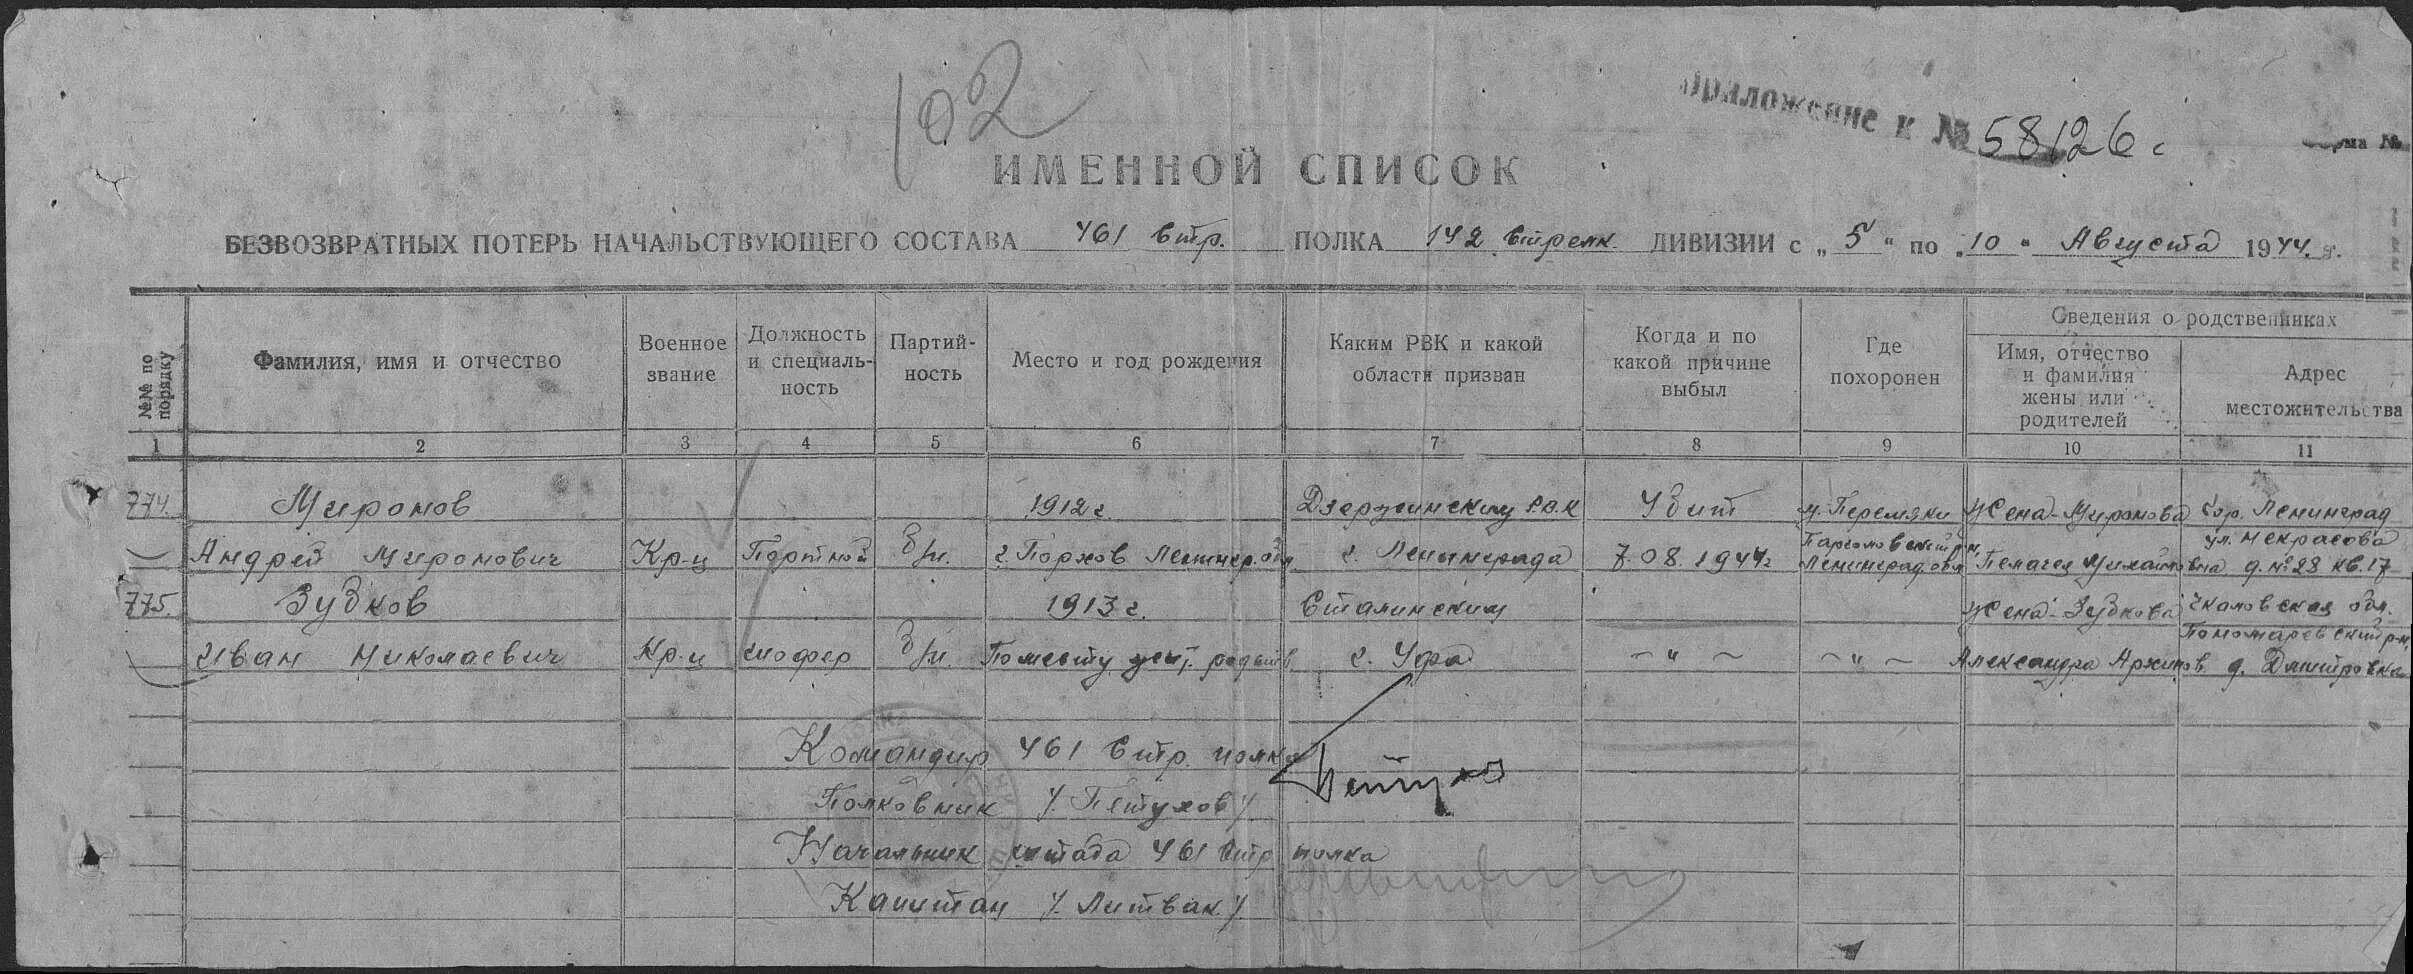 102
Приложение к № 58126с
Форма №
ИМЕННОЙ СПИСОК
БЕЗВОЗВРАТНЫХ ПОТЕРЬ НАЧАЛЬСТВУЮЩЕГО СОСТАВА 461 стр. ПОЛКА 142 стрелк. ДИВИЗИИ с „5“ по „10“ Августа 1944 г.
№№ по порядку
Фамилия, имя и отчество
Военное звание
Должность и специаль-ность
Партий-ность
Место и год рождения
Каким РВК и какой области призван
Когда и по какой причине выбыл
Где похоронен
Сведения о родственниках
Имя, отчество и фамилия жены или родителей
Адрес местожительства
1 2 3 4 5 6 7 8 9 10 11
774. Миронов 1912 г. Дзержинским РВК Убит м. Перемяки Жена-Миронова гор. Ленинград
Андрей Миронович Кр-ц Портной б/п. г. Порхов Ленингр. обл г. Ленинграда 7.08.1944г Парголовский р-н, Ленинград. обл Пелагея Михайловна ул. Некрасова д. № 28 кв. 17
775. Зубков 1913 г. Сталинским Жена-Зубкова Чкаловская обл.
Иван Николаевич Кр-ц шофер б/п. По месту жит. родств. г. Уфа — " — — " — Александра Архипов Пономаревский р-н, д. Дмитровка
Командир 461 стр. полка
Полковник /Петухов/
Начальник штаба 461 стр полка
Капитан /Литвак/